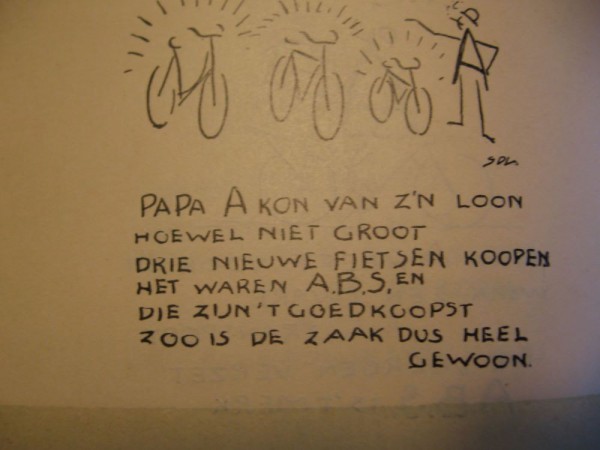 PAPA A KON VAN Z'N LOON
HOEWEL NIET GROOT
DRIE NIEUWE FIETSEN KOOPEN
HET WAREN A.B.S, EN
DIE ZIJN 'T GOEDKOOPST
ZOO IS DE ZAAK DUS HEEL
GEWOON.